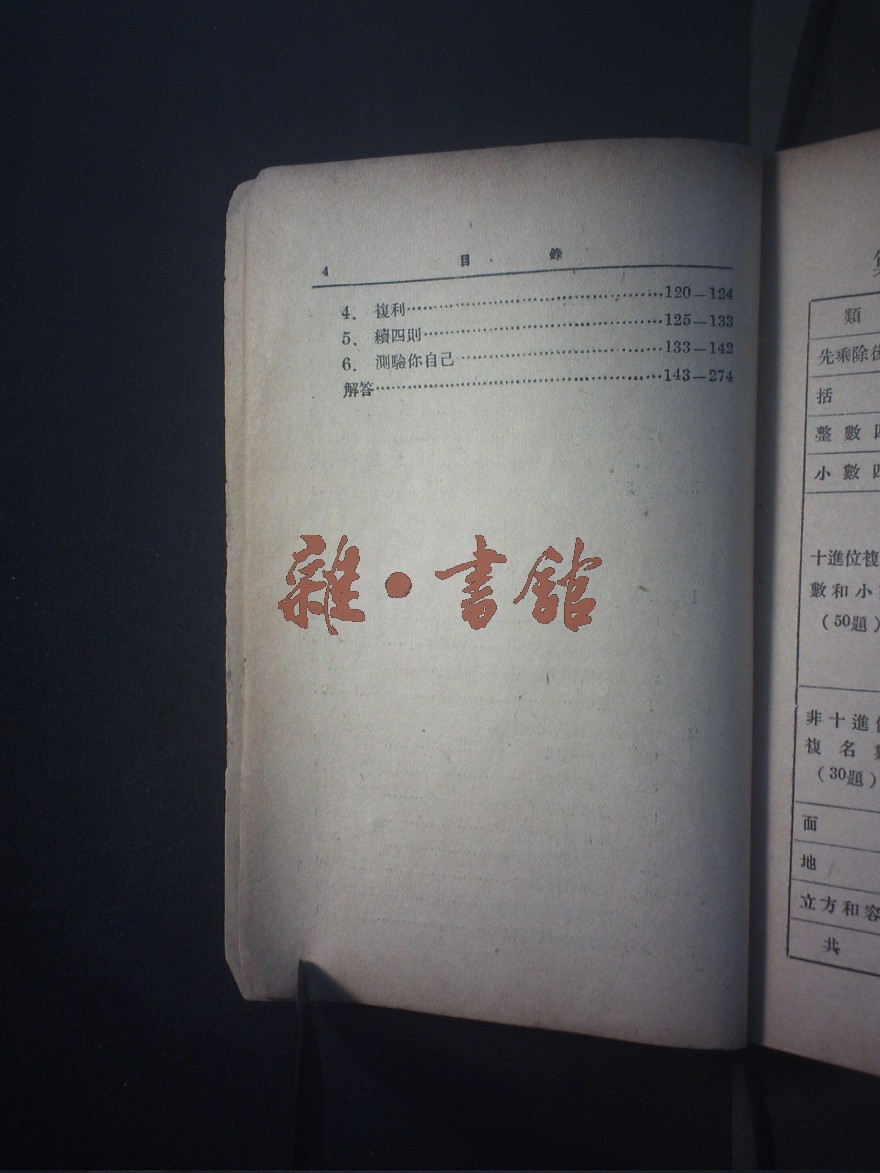 4 目錄
4. 複利…120—124
5. 續四則…125—133
6. 測驗你自己…133—142
解答…143—274
雜·書館
類
先乘除後
括
整數四
小數四
十進位複
數和小
(50題)
非十進位
複名數
(30題)
面
地
立方和容
共